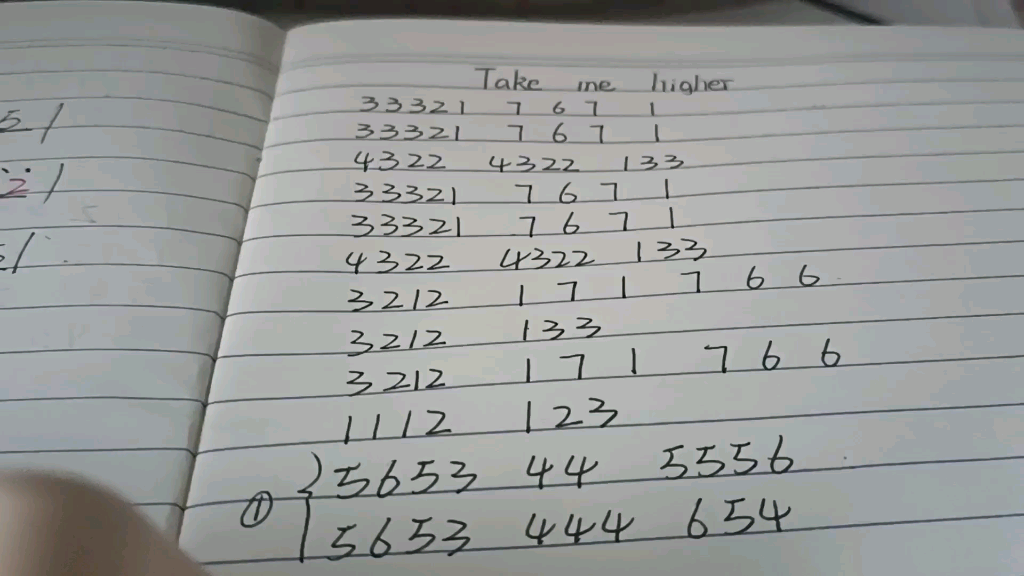 Take me higher
33321 7 6 7 1
33321 7 6 7 1
4322 4322 133
33321 7 6 7 1
33321 7 6 7 1
4322 4322 133
3212 1 7 1 7 6 6
3212 133
3212 1 7 1 7 6 6
1112 123
5653 44 5556
① 5653 444 654
5 /
2 /
/